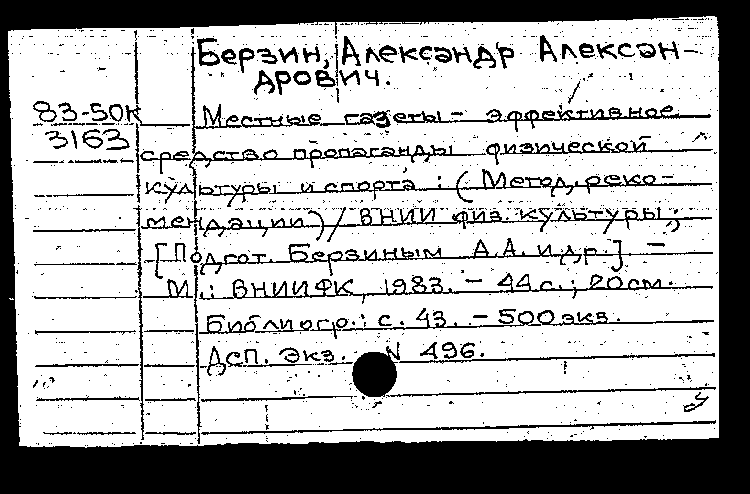 Берзин, Александр Алексан-
дрович.
83-50к
3163
Местные газеты - эффективное
средство пропаганды физической
культуры и спорта : (Метод. реко-
мендации) / ВНИИ физ. культуры ;
[Подгот. Берзиным А.А. и др.]. -
М.: ВНИИФК, 1983. - 44 с. ; 20 см.
Библиогр.: с. 43. - 500 экз.
Дсп. Экз. N 496.